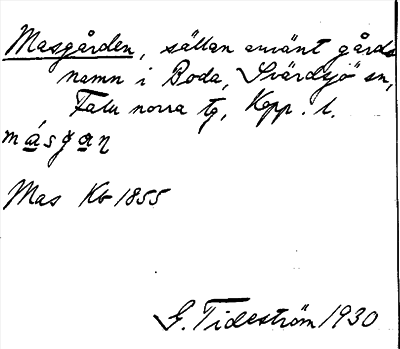 Masgården, sällan använt gårds
namn i Boda, Svärdsjö sn,
Falu norra tg, Kopp. l.
másgan
Mas Kb 1855
G. Tideström 1930